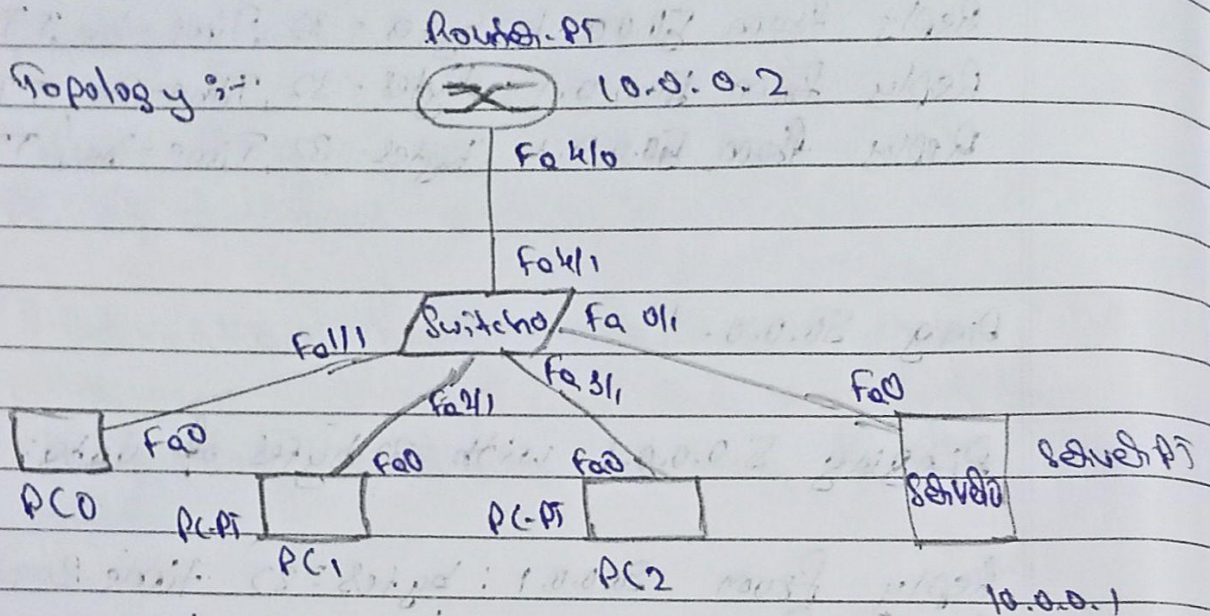 Router-PT
Topology :-
10.0.0.2
Fa4/0
Fa4/1
Switch0
Fa 0/1
Fa1/1
Fa2/1
Fa3/1
Fa0
Fa0
Fa0
Fa0
PC0
PC-PT
PC-1
PC-PT
PC2
Server0
Server-PT
10.0.0.1